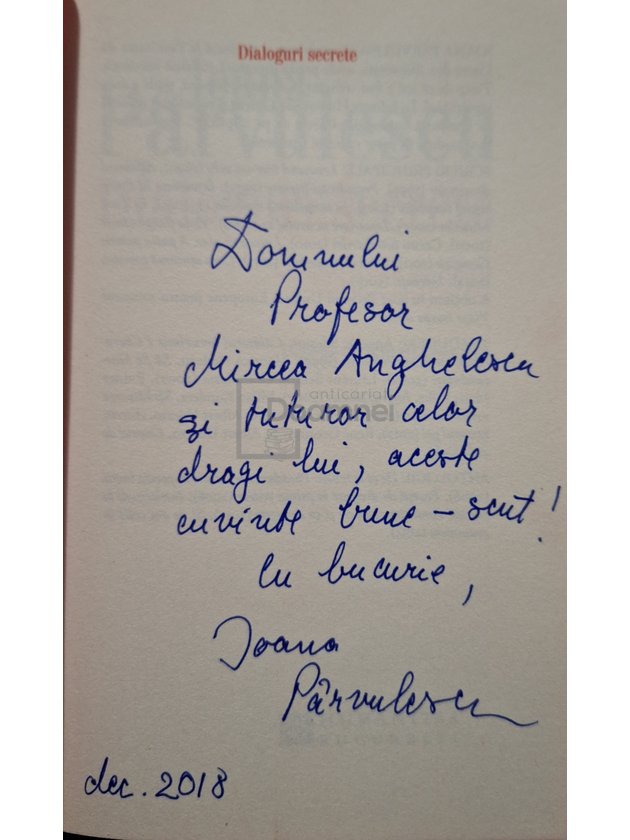 Dialoguri secrete
Domnului
Profesor
Mircea Anghelescu
și tuturor celor
dragi lui, aceste
cuvinte bune – scut!
Cu bucurie,
Ioana
Pârvulescu
dec. 2018
anticariat
Doamnei